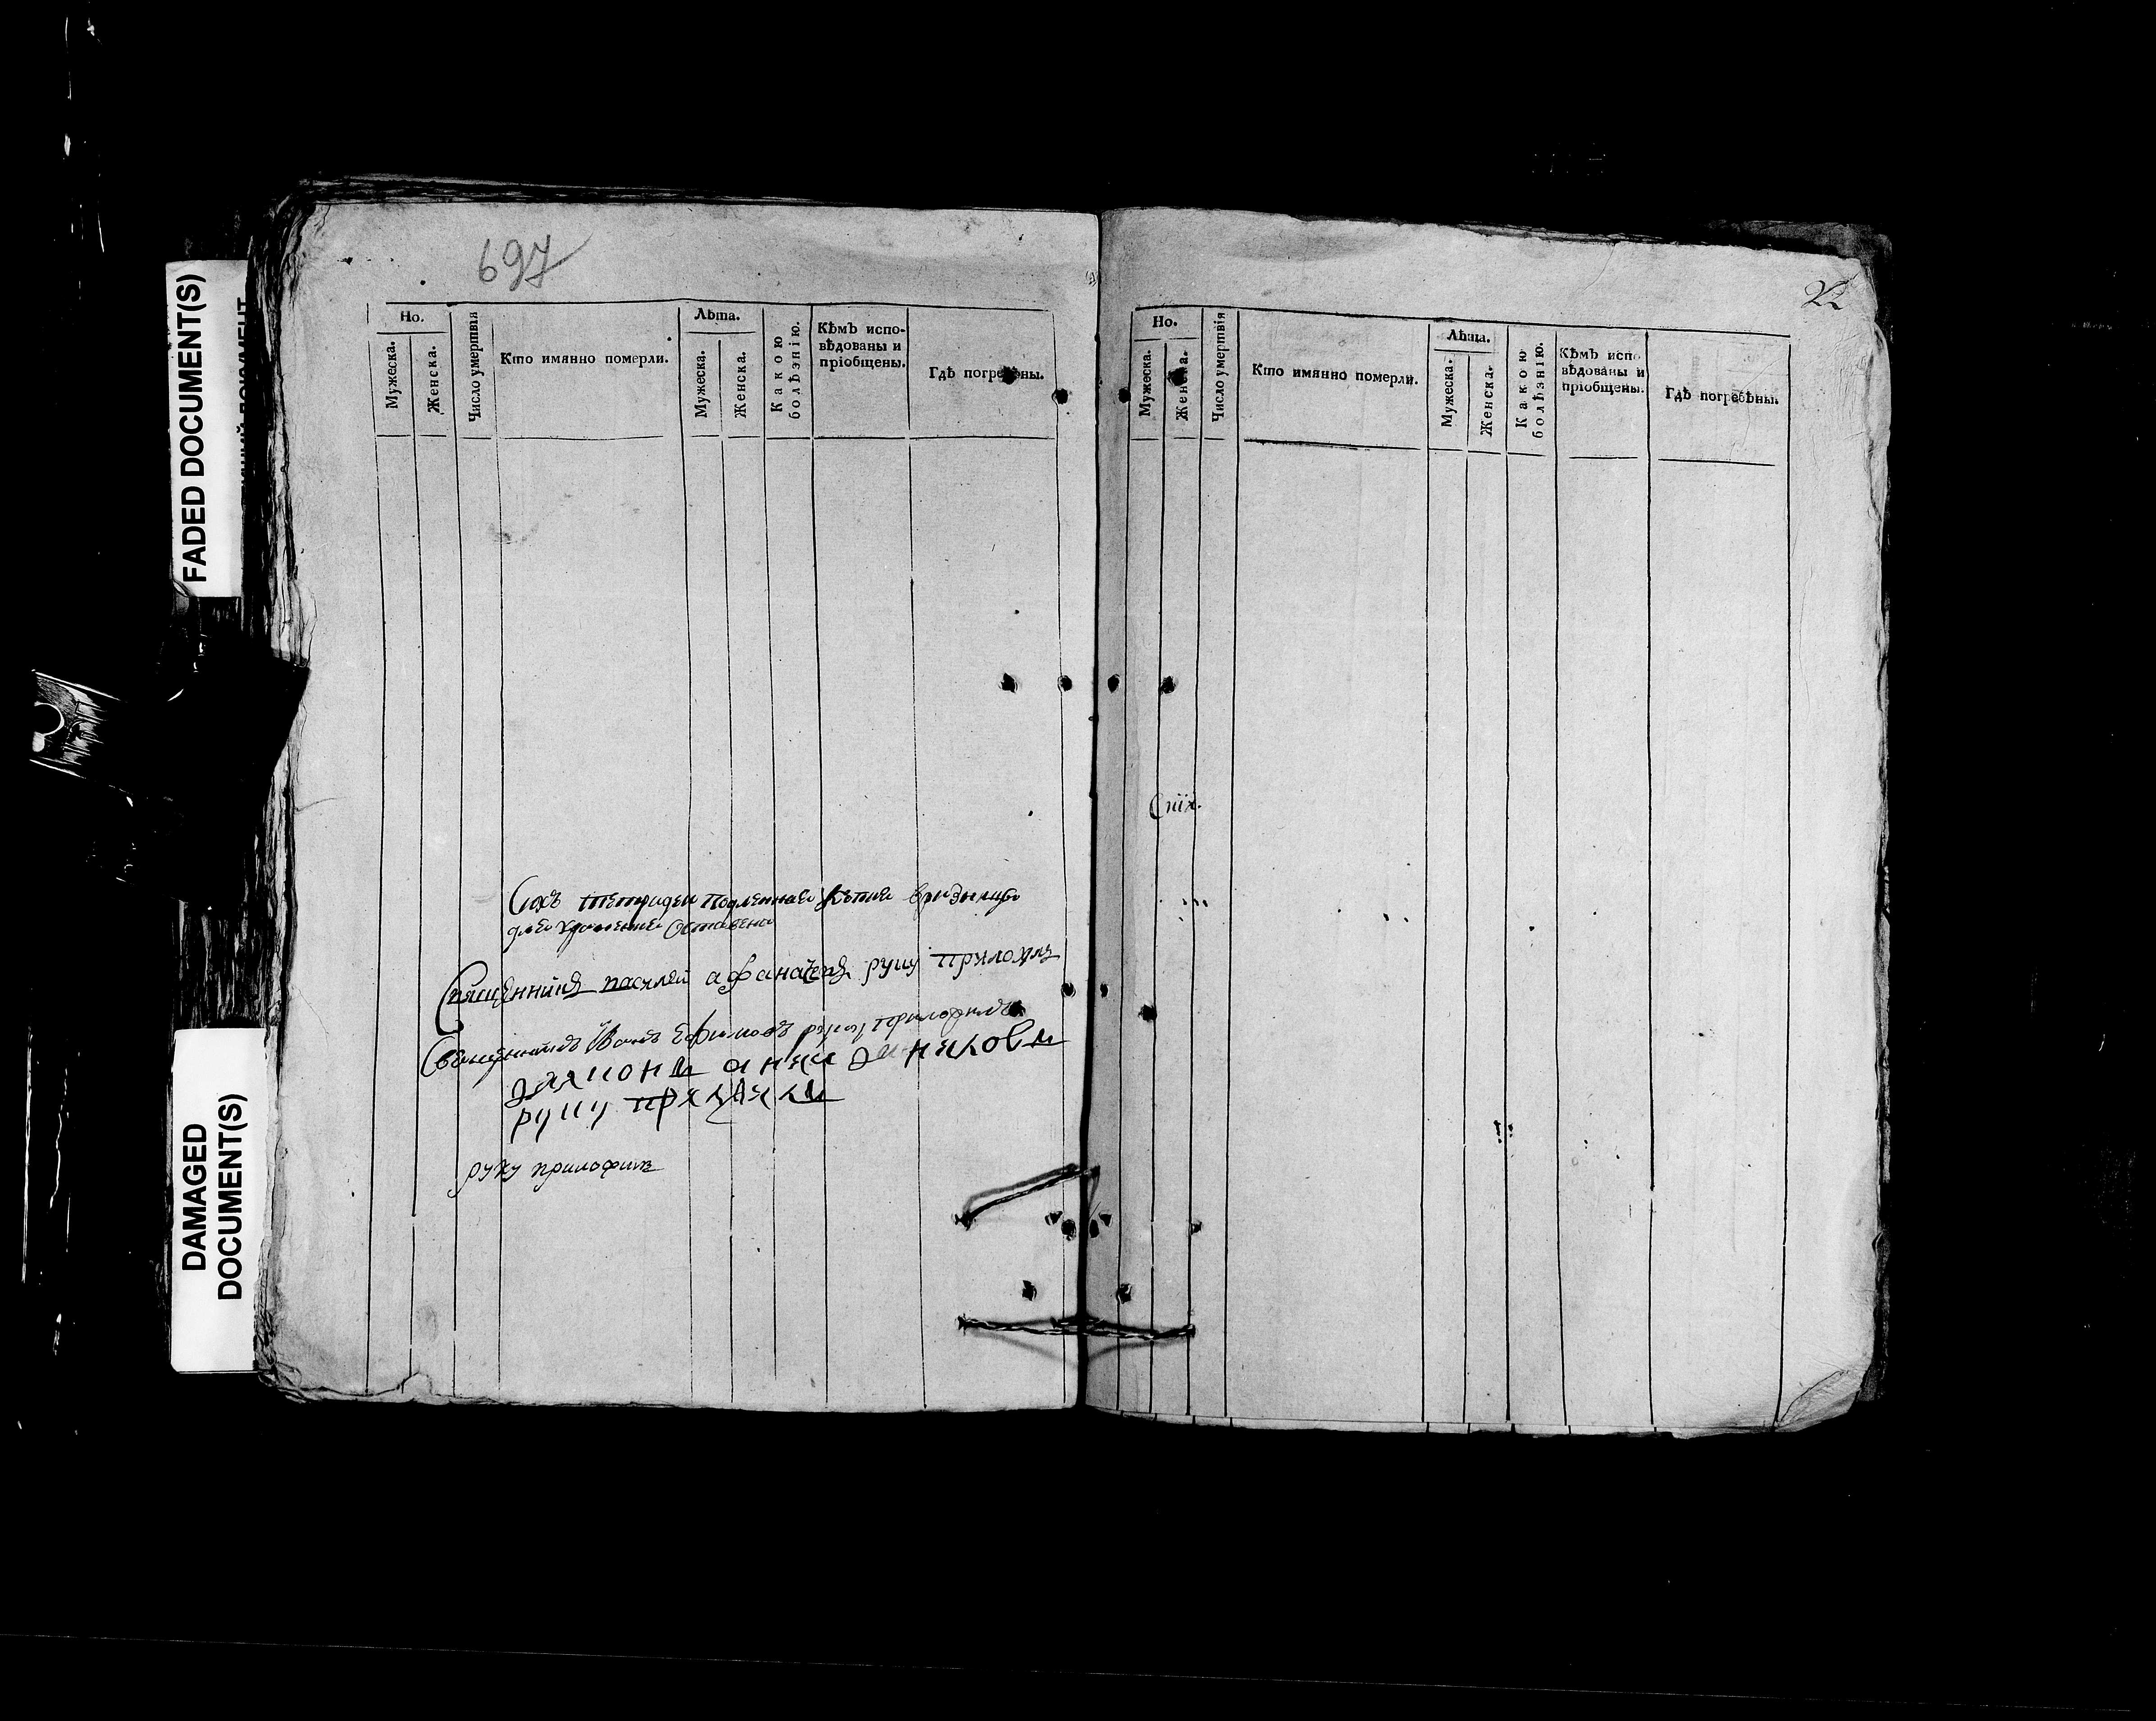 FADED DOCUMENT(S)
DAMAGED
DOCUMENT(S)
697
Но.
Мужеска.
Женска.
Число умертвія
Кто имянно померли.
Лѣта.
Мужеска.
Женска.
Какою
болѣзнію.
Кѣмъ испо-
вѣдованы и
пріобщены.
Гдѣ погребены.
подленная копия
для хранения оставлена
Священникъ василей афанасьевъ руку приложилъ
Священникъ Иванъ Ефимовъ руку приложилъ
руку
руку приложилъ
22
Но.
Мужеска.
Женска.
Число умертвія
Кто имянно померли.
Лѣта.
Мужеска.
Женска.
Какою
болѣзнію.
Кѣмъ испо
вѣдованы и
пріобщены.
Гдѣ погребены.